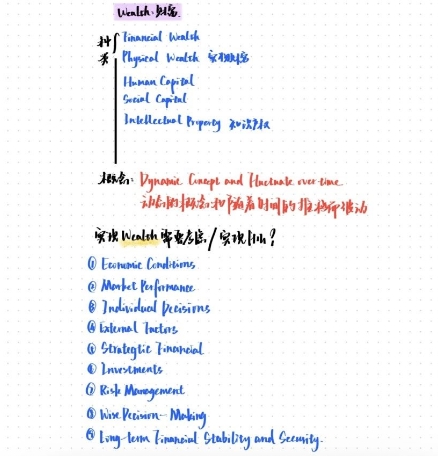 Wealth 财富.
种 Financial Wealth
类 Physical Wealth 实物财富
Human Capital
Social Capital
Intellectual Property 知识产权
概念: Dynamic Concept and Fluctuate over time
动态的概念和随着时间的推移而波动
实现Wealth需要考虑/实现
① Economic Conditions
② Market Performance
③ Individual Decisions
④ External Factors
⑤ Strategtic Financial
⑥ Investments
⑦ Risk Management
⑧ Wise Decision-Making
⑨ Long-term Financial Stability and Security.